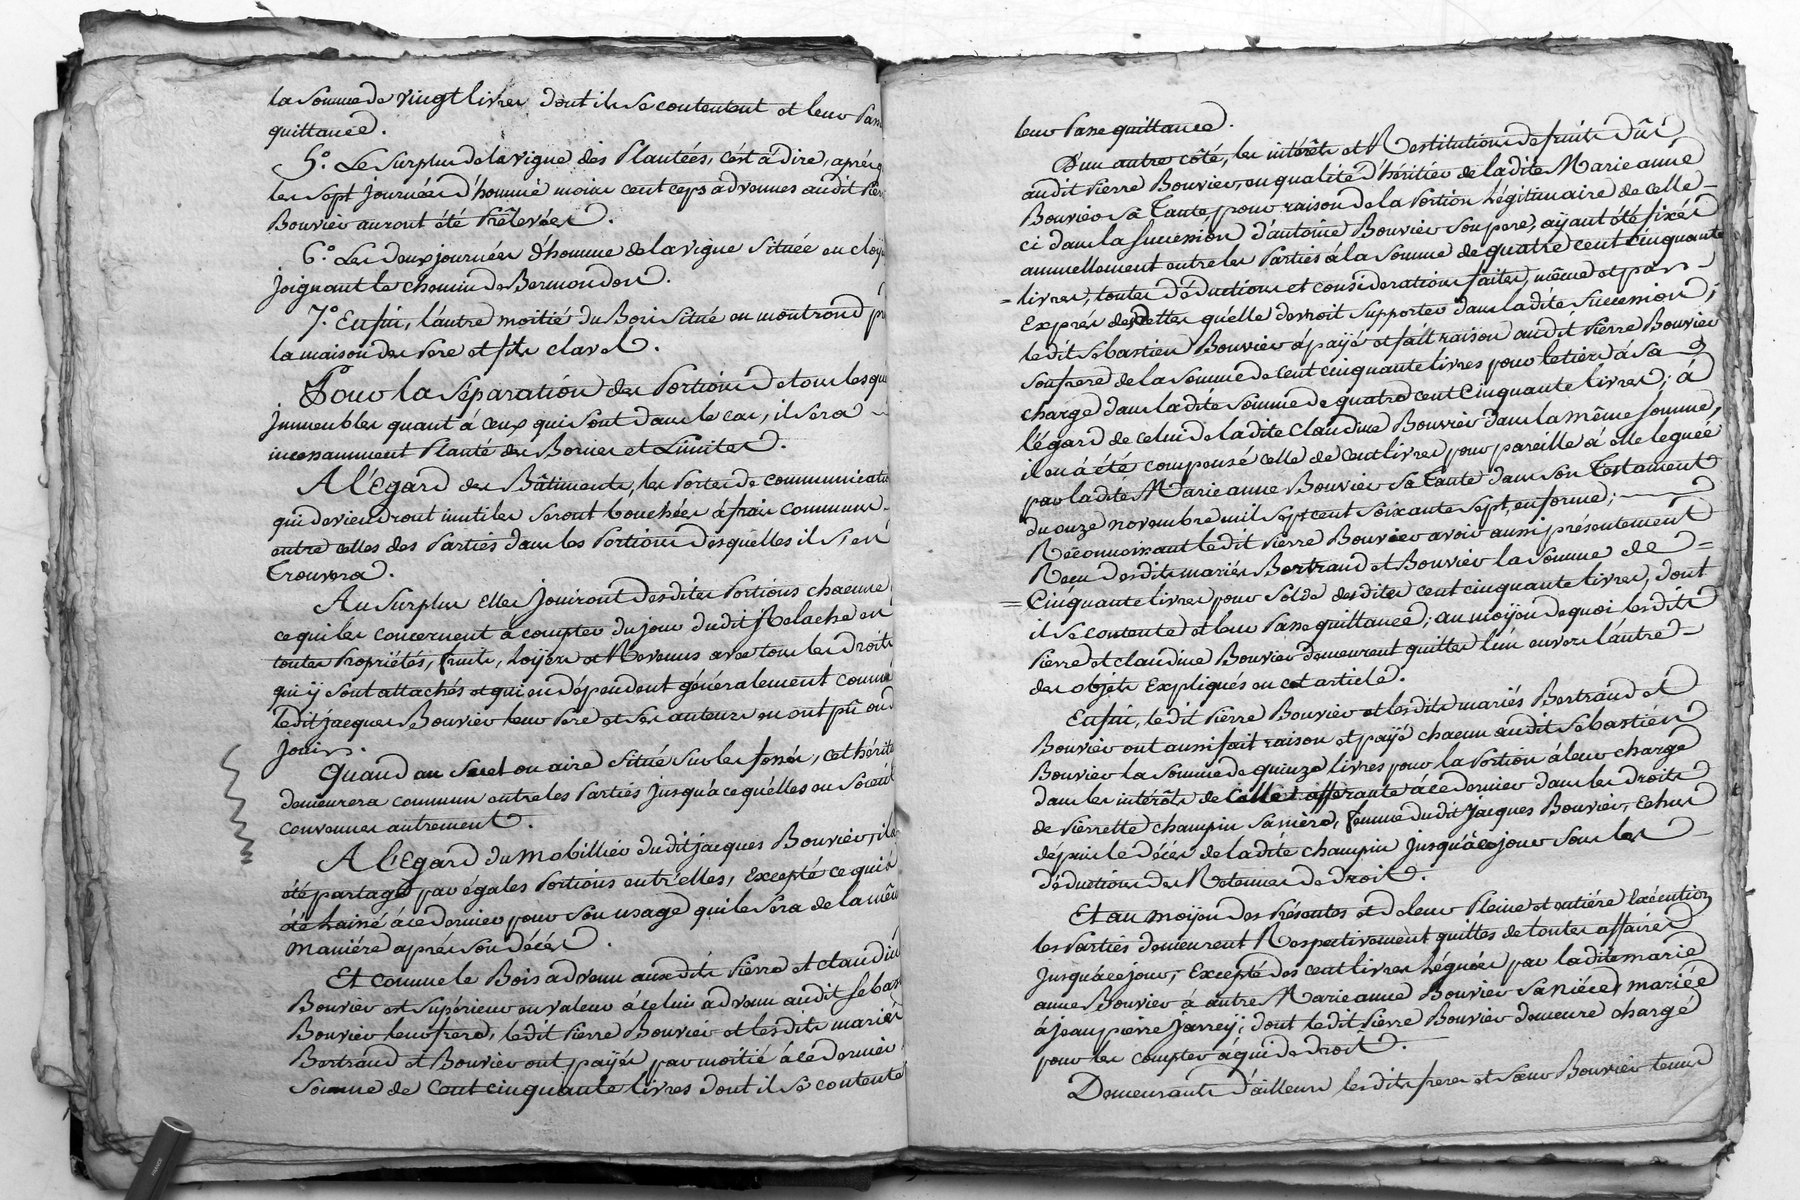 la Somme de vingt livres dont ils se contentent et leur Passe
quittance.
5.° Le Surplus de la vigne des Plantées, c'est à dire, après q
les sept journées d'homme moins cent ceps advenues audit Pier
Bouvier auront été Prélevées.
6.° Les deux journées d'homme de la vigne située en cloy
joignant le chemin de Bermondon.
7.° Enfin, l'autre moitié du Bois situé en montrond pr
la maison des Pere et fils clavel.
Pour la Séparation des Portions de tous lesque
jmmeubles quant à ceux qui sont dans le cas, il sera
incessamment Planté des Bornes et Limites.
A l'Egard des Bâtiments, les Portes de communicatio
qui deviendront inutiles seront bouchées à frais communs
entre celles des Parties dans les Portions desquelles il s'en
trouvera.
Au Surplus Elles jouiront desdites Portions chacune
ce qui les concernent à compter du jour dudit Relache en
toutes Propriétés, fruits, loÿers et Revenus avec tous les droits
qui ÿ sont attachés et qui en dépendent généralement comme
ledit jacques Bouvier leur Pere et ses auteurs en ont pû ou d
jouir.
Quand au Suel ou aire situé sur les fossés, cet hérita
demeurera commun entre les Parties jusqu'à ce qu'elles en soient
convenues autrement.
A l'Egard du mobillier dudit jacques Bouvier, il a
été partagé par égales Portions entr'elles, Excepté ce qui a
été laissé à ce dernier pour son usage qui le sera de la mêm
maniére après son décès.
Et comme le Bois advenu auxdits Pierre et claudine
Bouvier est supérieur en valeur à celui advenu audit sebast
Bouvier leur frere, ledit Pierre Bouvier et lesdits mariés
Bertrand et Bouvier ont payés par moitié à ce dernier
Somme de Cent cinquante livres dont il se contente
leur Passe quittance.
D'un autre côté, les intérêts et Restitutions de fruits dûs
audit Pierre Bouvier, en qualité d'héritier de ladite Marie anne
Bouvier sa Tante, pour raison de la Portion Légitimaire de celle
ci dans la succession d'antoine Bouvier son pere, aÿant été fixés
annuellement entre les Parties à la Somme de quatre cent cinquante
= livres, toutes déductions et considerations faites, même et par
Exprés des dettes qu'elle devroit supporter dans ladite succession;
ledit sebastien Bouvier à paÿé et fait raison audit Pierre Bouvier
son frere de la Somme de Cent cinquante livres pour le tiers à sa
charge dans ladite Somme de quatre cent Cinquante livres; à
l'égard de celui de ladite claudine Bouvier dans la même somme,
il en à été compensé celle de Cent livres pour pareille à elle leguée
par ladite Marie anne Bouvier sa Tante dans son Testament
du onze novembre mil sept cent soixante sept, en forme;
Reconnoissant ledit Pierre Bouvier avoir aussi présentement
Reçu desdits mariés Bertrand et Bouvier la Somme de =
= Cinquante livres pour solde desdites cent cinquante livres, dont
il se contente et leur Passe quittance; au moÿen de quoi lesdits
Pierre et claudine Bouvier demeurent quittes l'un envers l'autre
des objets Expliqués en cet article.
Enfin, ledit Pierre Bouvier et lesdits mariés Bertrand et
Bouvier ont aussi fait raison et paÿé chacun audit sébastien
Bouvier la Somme de quinze livres pour la Portion à leur charge
dans les intérêts de Celle afferante à ce dernier dans les droits
de Pierrette champin sa mère, femme dudit Jacques Bouvier, Echus
dépuis le décès de ladite champin jusqu'à ce jour sous les
déductions des Retenues de droit.
Et au moÿen des Présentes et de leur Pleine et entiére Exécution
les Parties demeurent Respectivement quittes de toutes affaires
jusqu'à ce jour, Excepté des cent livres Léguées par ladite marie
anne Bouvier à autre Marie anne Bouvier sa niéce, mariée
à jean pierre jarreÿ; dont ledit Pierre Bouvier demeure chargé
pour les compter à qui de droit.
Demeurants d'ailleurs lesdits freres et sœur Bouvier tenus